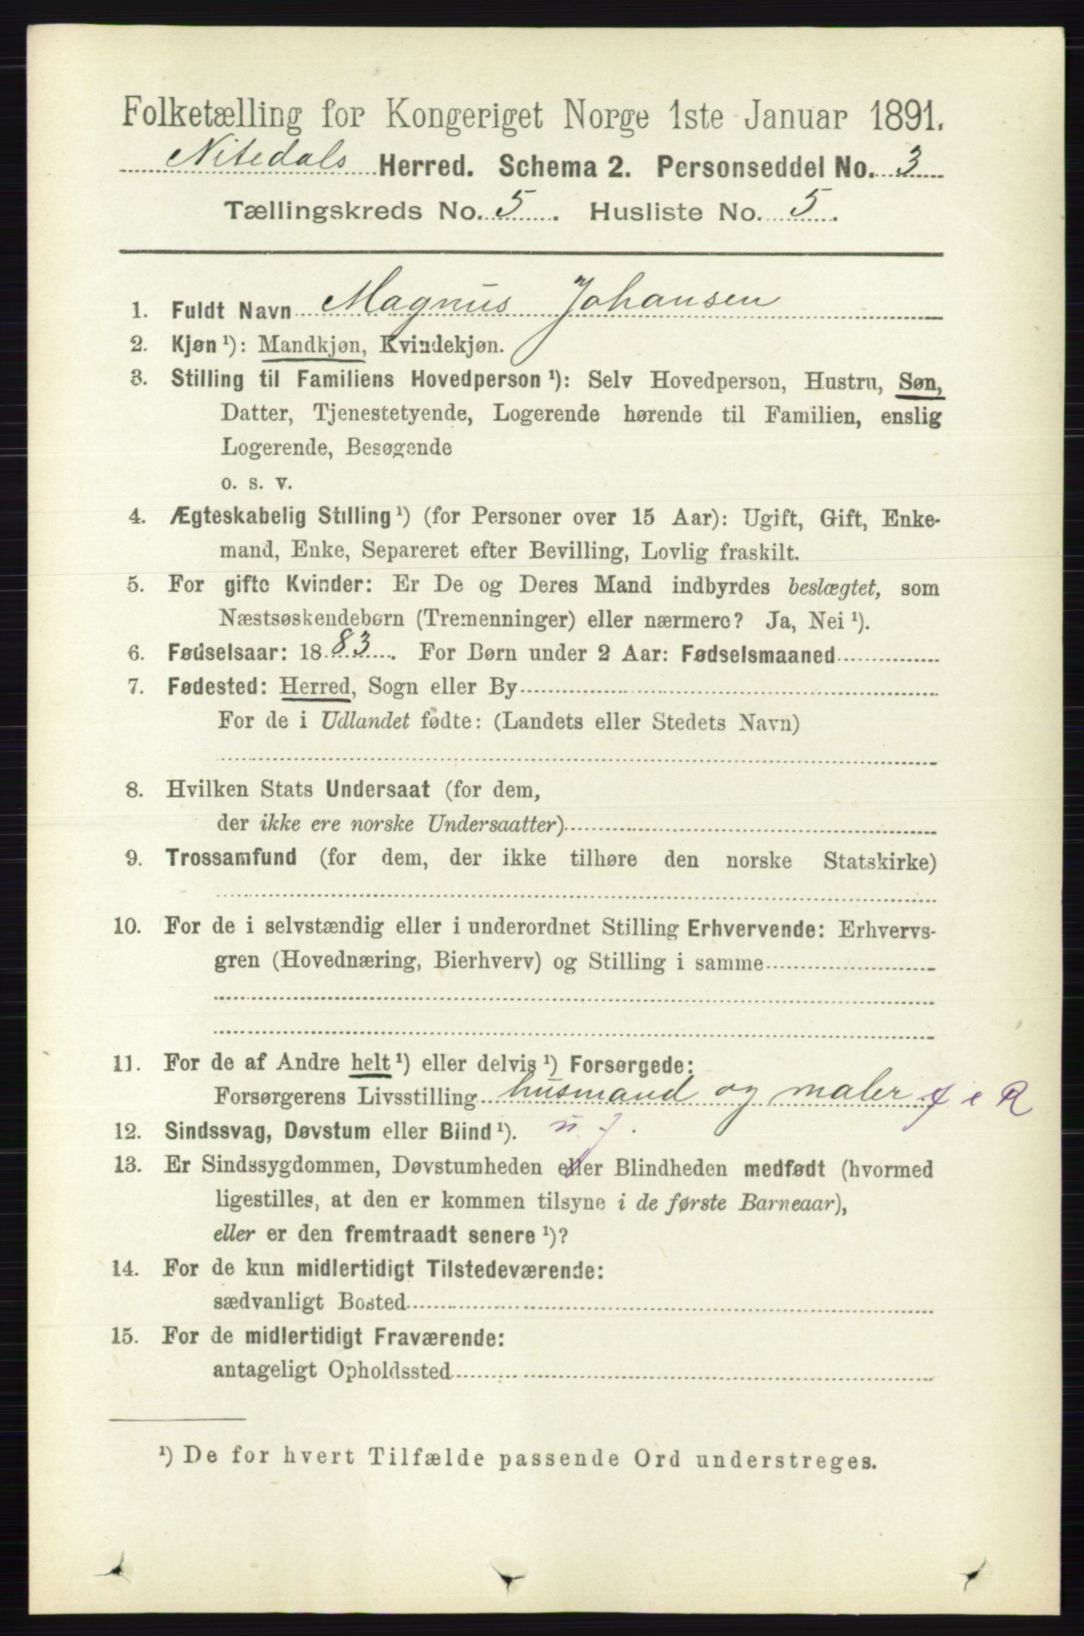 Folketælling for Kongeriget Norge 1ste Januar 1891.
Nitedals Herred. Schema 2. Personseddel No. 3
Tællingskreds No. 5. Husliste No. 5.
1. Fuldt Navn Magnus Johansen
2. Kjøn ¹): Mandkjøn, Kvindekjøn.
3. Stilling til Familiens Hovedperson ¹): Selv Hovedperson, Hustru, Søn,
Datter, Tjenestetyende, Logerende hørende til Familien, enslig
Logerende, Besøgende
o. s. v.
4. Ægteskabelig Stilling ¹) (for Personer over 15 Aar): Ugift, Gift, Enke-
mand, Enke, Separeret efter Bevilling, Lovlig fraskilt.
5. For gifte Kvinder: Er De og Deres Mand indbyrdes beslægtet, som
Næstsøskendebørn (Tremenninger) eller nærmere? Ja, Nei ¹).
6. Fødselsaar: 1883. For Børn under 2 Aar: Fødselsmaaned
7. Fødested: Herred, Sogn eller By
For de i Udlandet fødte: (Landets eller Stedets Navn)
8. Hvilken Stats Undersaat (for dem,
der ikke ere norske Undersaatter)
9. Trossamfund (for dem, der ikke tilhøre den norske Statskirke)
10. For de i selvstændig eller i underordnet Stilling Erhvervende: Erhvervs-
gren (Hovednæring, Bierhverv) og Stilling i samme
11. For de af Andre helt ¹) eller delvis ¹) Forsørgede:
Forsørgerens Livsstilling husmand og maler
12. Sindssvag, Døvstum eller Blind ¹).
13. Er Sindssygdommen, Døvstumheden eller Blindheden medfødt (hvormed
ligestilles, at den er kommen tilsyne i de første Barneaar),
eller er den fremtraadt senere ¹)?
14. For de kun midlertidigt Tilstedeværende:
sædvanligt Bosted
15. For de midlertidigt Fraværende:
antageligt Opholdssted
¹) De for hvert Tilfælde passende Ord understreges.